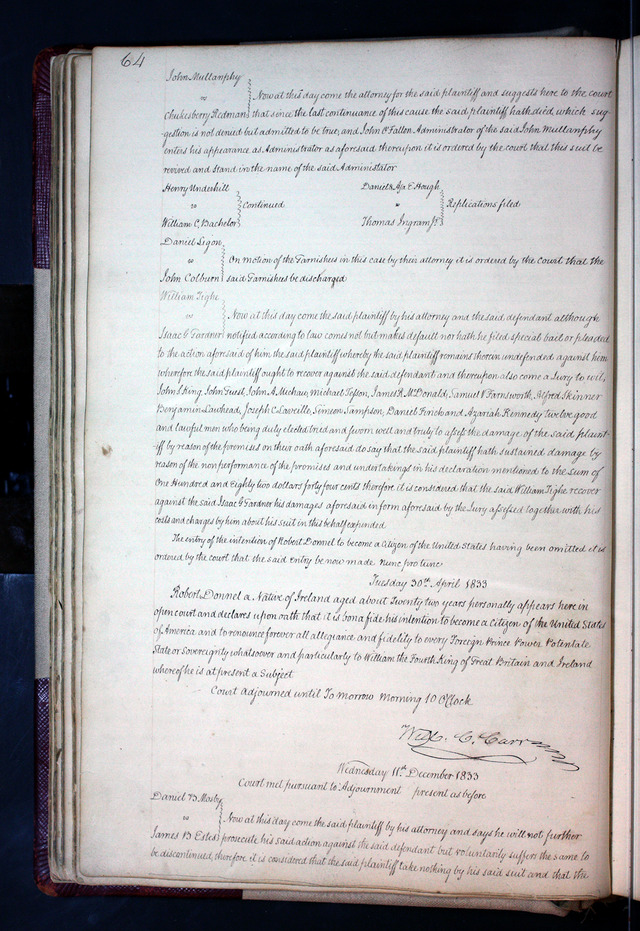 64
John Mullanphy
vs
Chukesberry Redman
Now at this day come the attorney for the said plaintiff and suggests here to the court
that since the last continuance of this cause the said plaintiff hath died, which sug-
gestion is not denied but admitted to be true, and John O'Fallon Administrator of the said John Mullanphy
enters his appearance as Administrator as aforesaid thereupon it is ordered by the court that this suit be
revived and stand in the name of the said Administator
Henry Underhill
vs
William C. Bachelor
Continued
Daniel & Asa E Hough
vs
Thomas Ingram Jr
Replications filed
Daniel Ligon
vs
John Colburn
On motion of the Garnishees in this case by their attorney it is ordered by the Court that the
said Garnishees be discharged
William Tighe
vs
Isaac G Gardner
Now at this day come the said plaintiff by his attorney and the said defendant although
notified according to law comes not but makes default nor hath he filed special bail or pleaded
to the action aforesaid of him the said plaintiff whereby the said plaintiff remains therein undefended against him
wherefore the said plaintiff ought to recover against the said defendant and thereupon also come a Jury to wit,
John S King, John Guest, John A. Michau, Michael Tesson, James R. McDonald, Samuel V Farnsworth, Alfred Skinner
Benjamin Lawhead, Joseph C. Laveille, Simeon Sampson, Daniel Finch and Azariah Kennedy Twelve good
and lawful men who being duly elected tried and sworn well and truly to assess the damage of the said plaint-
iff by reason of the premises on their oath aforesaid do say that the said plaintiff hath sustained damage by
reason of the non performance of the promises and undertakings in his declaration mentioned to the sum of
One Hundred and Eighty two dollars forty four cents therefore it is considered that the said William Tighe recover
against the said Isaac G Gardner his damages aforesaid in form aforesaid by the Jury assessed together with his
costs and charges by him about his suit in this behalf expended
The entry of the intention of Robert Donnel to become a Citizen of the United States having been omitted it is
ordered by the court that the said entry be now made nunc pro tunc
Tuesday 30th April 1833
Robert Donnel a Native of Ireland aged about Twenty two years personally appears here in
open court and declares upon oath that it is bona fide his intention to become a Citizen of the United States
of America and to renounce forever all allegiance and fidelity to every Foreign Prince Power Potentate
State or Sovereignty whatsoever and particularly to William the Fourth King of Great Britain and Ireland
whereof he is at present a Subject
Court Adjourned until To morrow Morning 10 O'Clock
Will. C. Carr
Wednesday 11th December 1833
Court met pursuant to Adjournment present as before
Daniel B Mosby
vs
James B Estes
Now at this day come the said plaintiff by his attorney and says he will not further
prosecute his said action against the said defendant but voluntarily suffers the same to
be discontinued, therefore it is considered that the said plaintiff take nothing by his said suit and that the